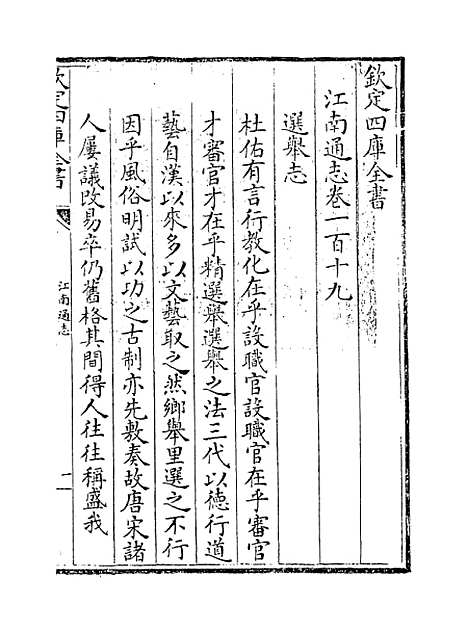 欽定四庫全書
江南通志卷一百十九
選舉志
杜佑有言行教化在乎設職官設職官在乎審官
才審官才在乎精選舉選舉之法三代以德行道
藝自漢以來多以文藝取之然鄉舉里選之不行
因乎風俗明試以功之古制亦先敷奏故唐宋諸
人屢議改易卒仍舊格其間得人往往稱盛我
欽定四庫全書
江南通志
一